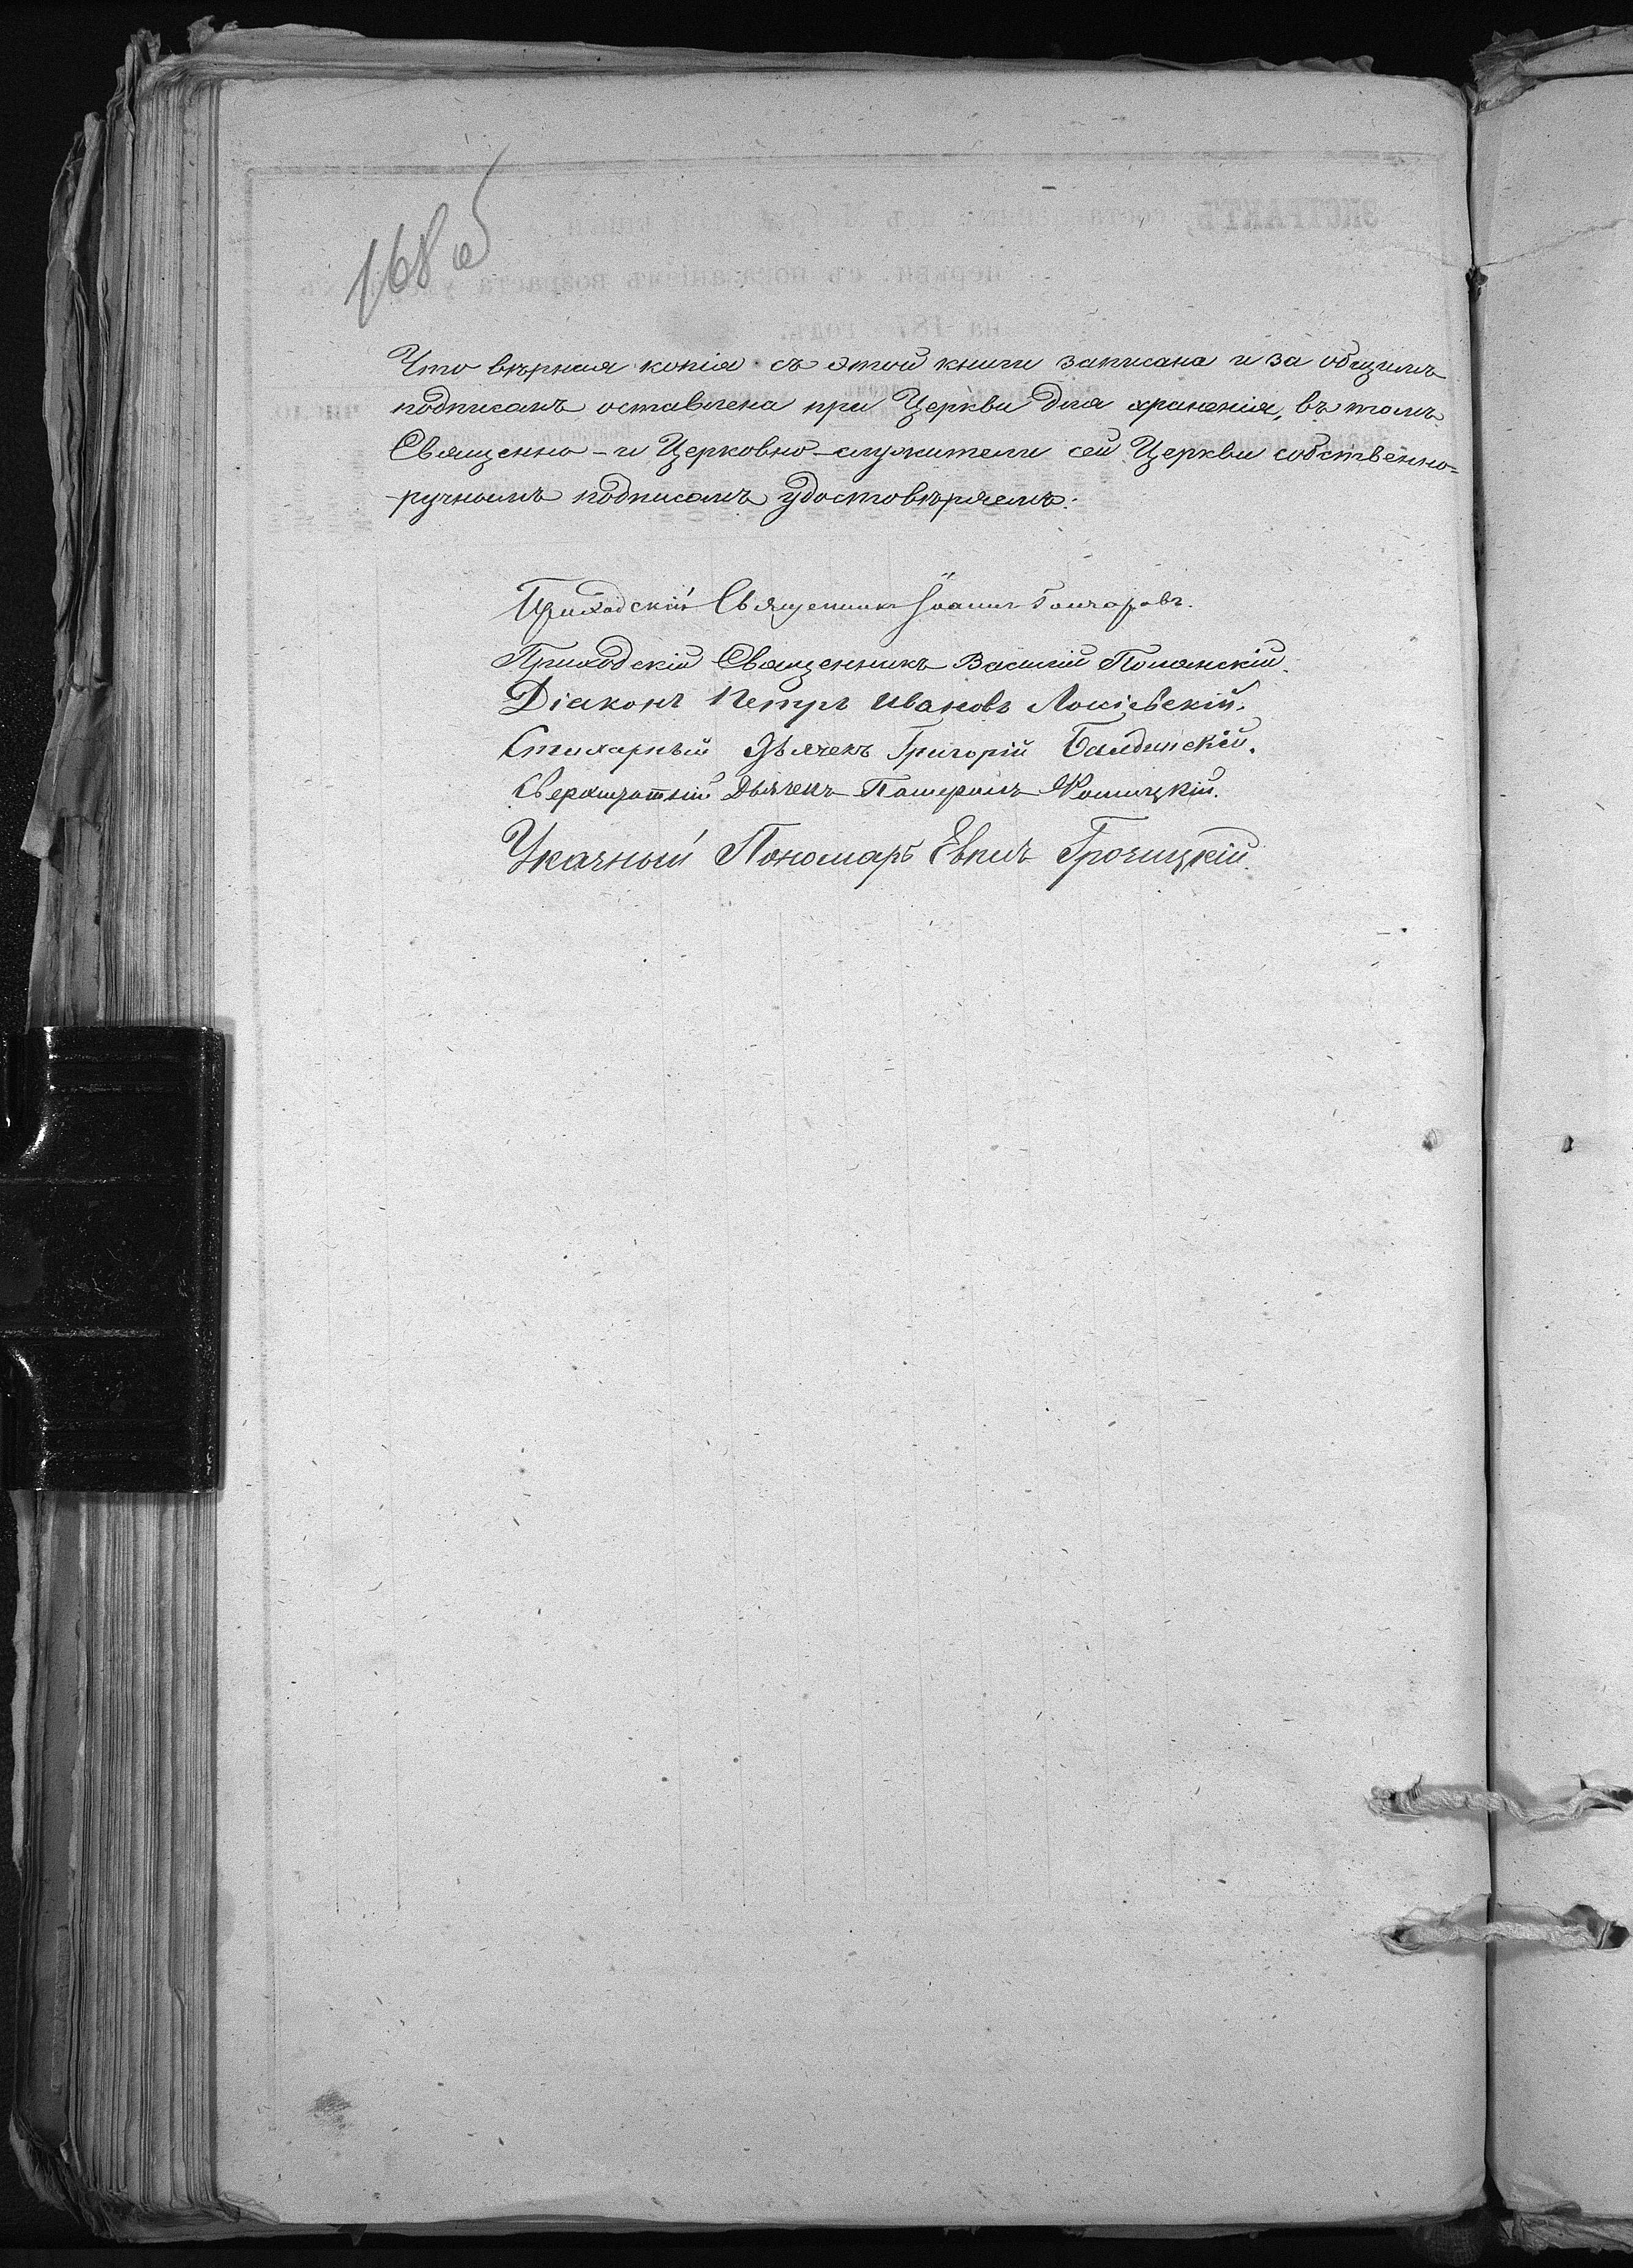 168 об
Что вѣрная копія съ этой книги записана и за общимъ
подписомъ оставлена при Церкви для храненія, въ томъ
Священно-и Церковно-служители сей Церкви собственно=
ручнымъ подписомъ удостовѣряемъ:
Приходскій Священникъ Іоаннъ Гончаровъ.
Приходскій Священникъ Василій Полонскій.
Діаконъ Петръ Ивановъ Лосіевскій.
Стихарный Дьячекъ Григорій Балдинскій.
Сверхштатный Дьячекъ
Указный Пономарь Грозицкій.